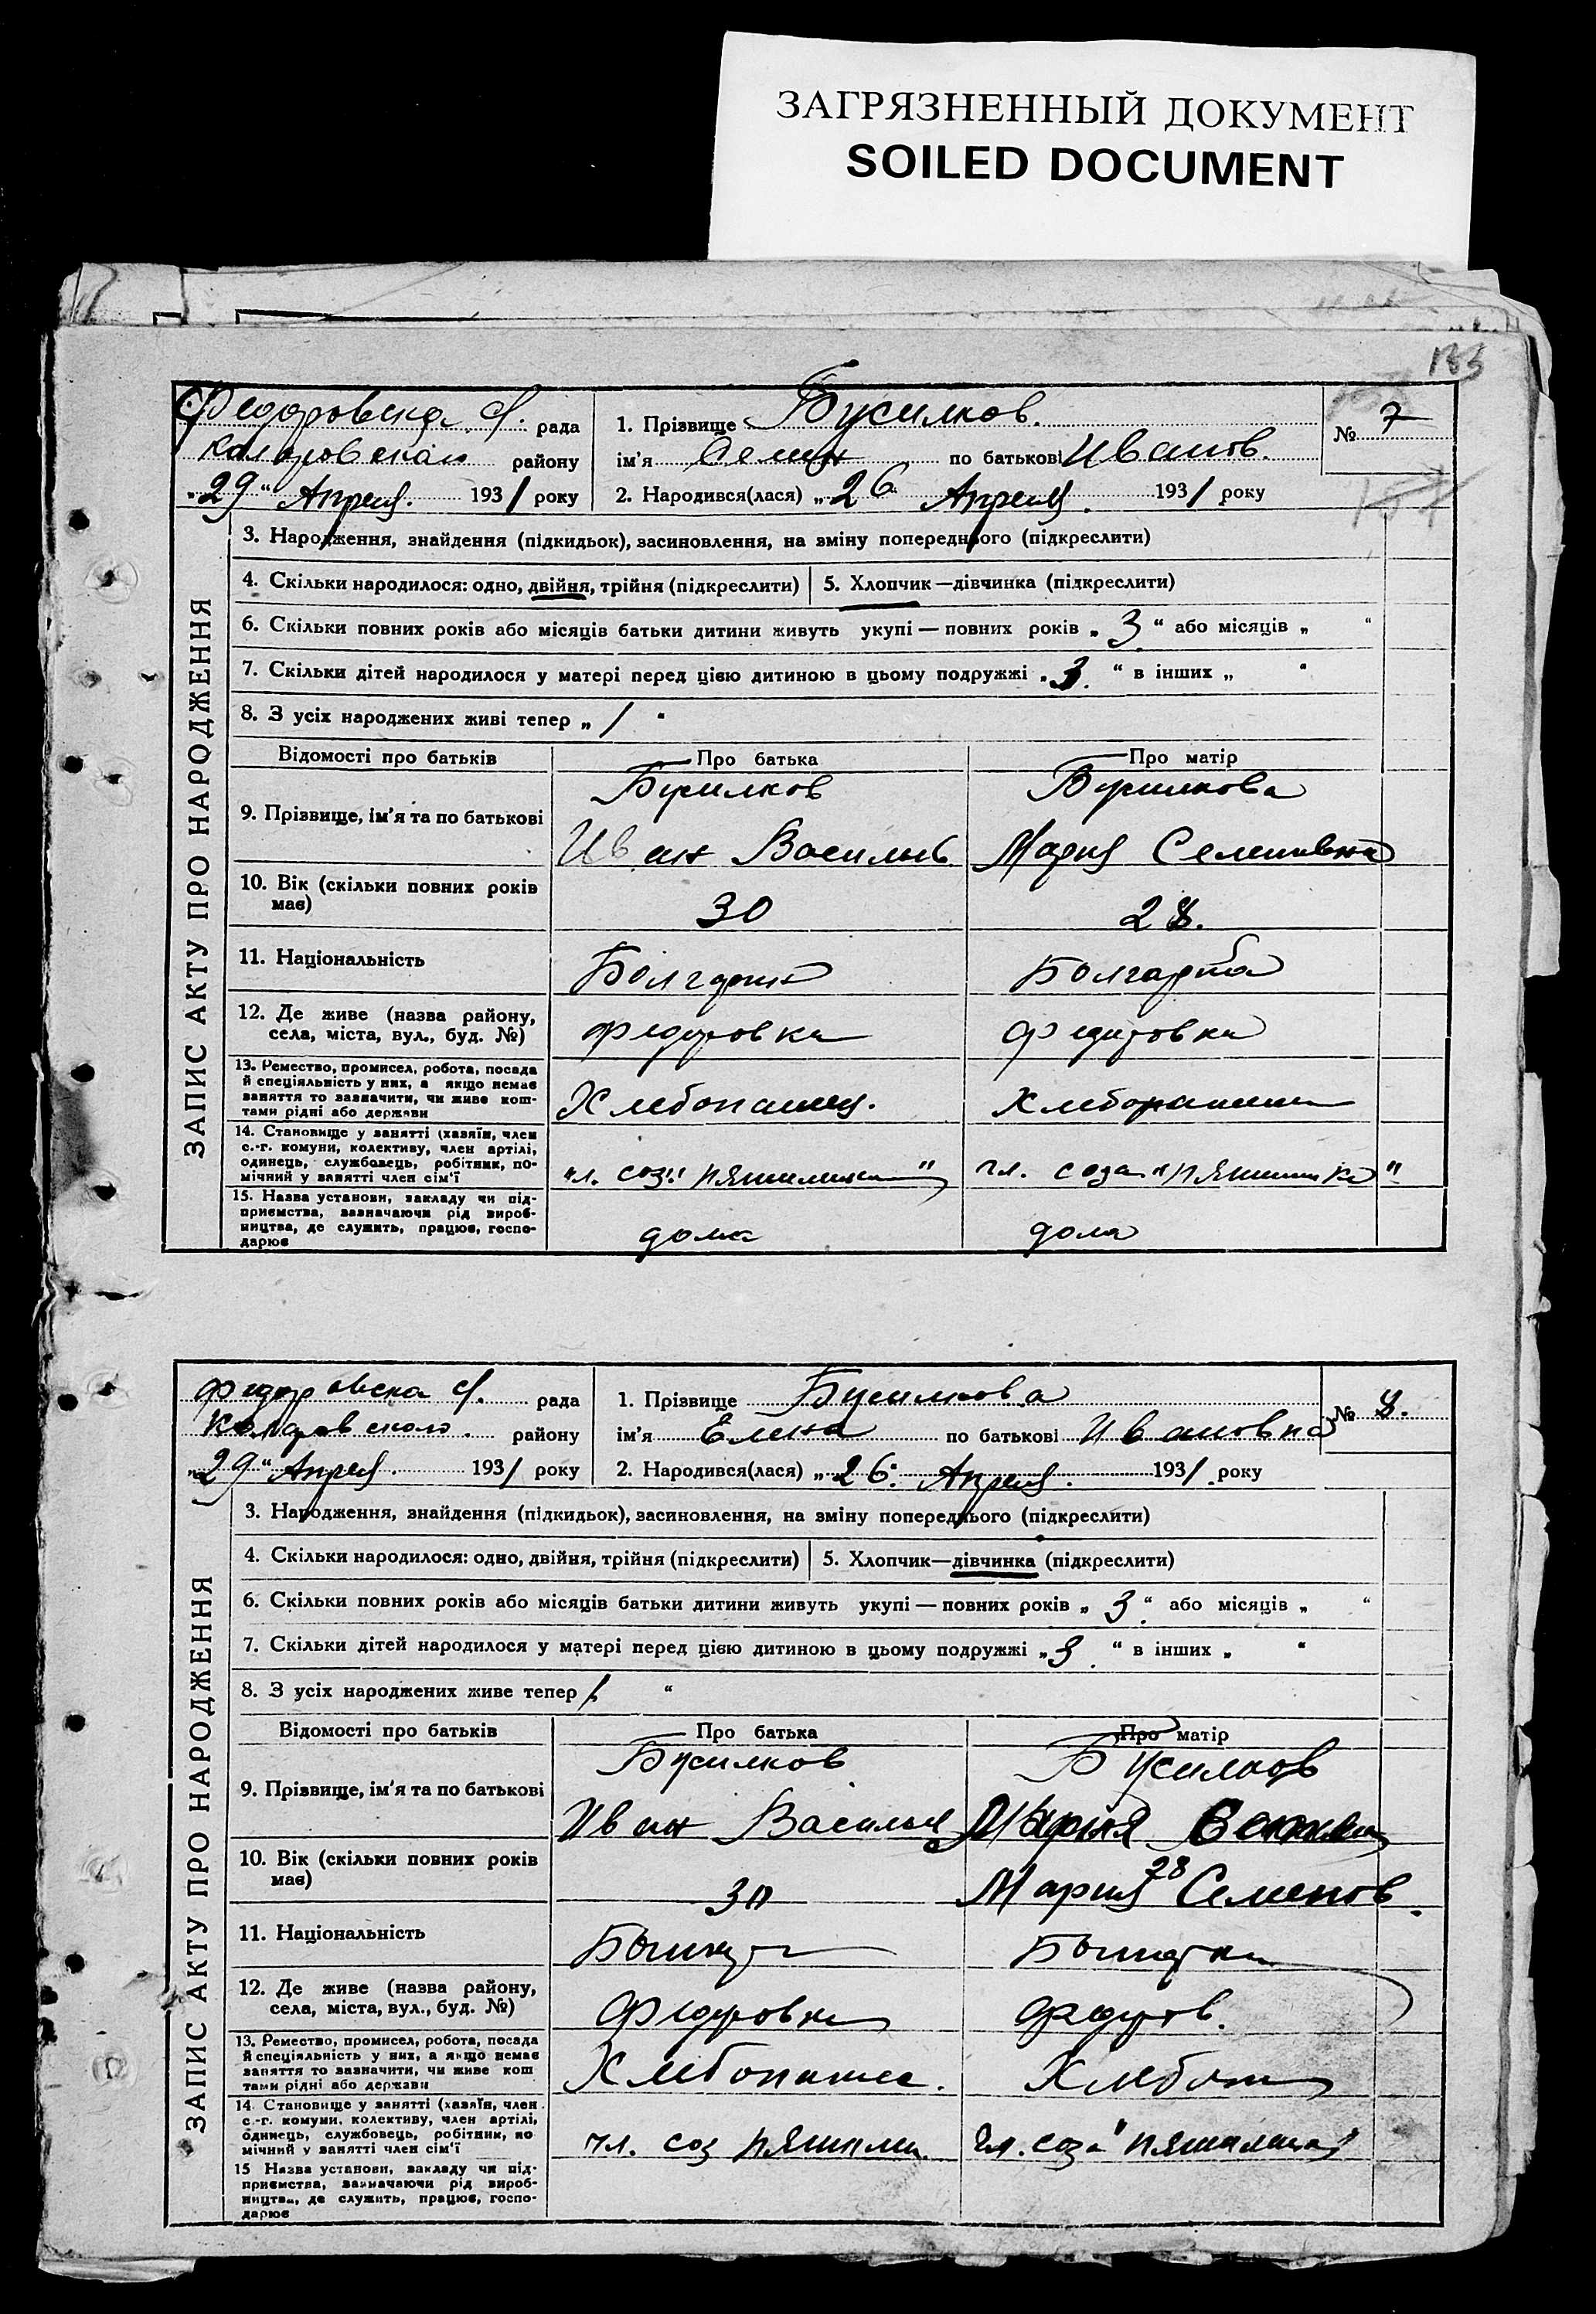 ЗАГРЯЗНЕННЫЙ ДОКУМЕНТ
SOILED DOCUMENT
133
Федоровска С. рада
Коларовскаго району
"29" Апреля. 1931 року
1. Прізвище Бусилков.
ім'я Семен по батькові Иванов.
2. Народився(лася) „26 Апреля. 1931 року
№ 7
ЗАПИС АКТУ ПРО НАРОДЖЕННЯ
3. Народження, знайдення (підкидьок), засиновлення, на зміну попереднього (підкреслити)
4. Скільки народилося: одно, двійня, трійня (підкреслити) 5. Хлопчик—дівчинка (підкреслити)
6. Скільки повних років або місяців батьки дитини живуть укупі — повних років „ 3 “ або місяців „ “
7. Скільки дітей народилося у матері перед цією дитиною в цьому подружжі „ 3. “ в інших „ “
8. З усіх народжених живі тепер „ 1 “
Відомості про батьків Про батька Про матір
9. Прізвище, ім'я та по батькові
Бусилков Бусилкова
Иван Васильев. Мария Семеновна
10. Вік (скільки повних років має)
30 28.
11. Національність
Болгарин Болгарка
12. Де живе (назва району, села, міста, вул., буд. №)
Федоровка Федоровка
13. Ремество, промисел, робота, посада
й спеціяльність у них, а якщо немає
заняття то зазначити, чи живе кош-
тами рідні або держави
Хлебопашец.
14. Становище у занятті (хазяїн, член
с.-г. комуни, колективу, член артілі,
одинець, службовець, робітник, по-
мічний у занятті член сім'ї
чл. соза "
15. Назва установи, закладу чи під-
приємства, зазначаючи рід вироб-
ництва, де служить, працює, госпо-
дарює
дома дома
Федоровска С. рада
Коларовского. району
„29“ Апреля. 1931 року
1. Прізвище Бусилкова
ім'я Елена по батькові Ивановна
2. Народився(лася) „26. Апреля. 1931. року
№ 8.
ЗАПИС АКТУ ПРО НАРОДЖЕННЯ
3. Народження, знайдення (підкидьок), засиновлення, на зміну попереднього (підкреслити)
4. Скільки народилося: одно, двійня, трійня (підкреслити) 5. Хлопчик—дівчинка (підкреслити)
6. Скільки повних років або місяців батьки дитини живуть укупі — повних років „ 3. “ або місяців „ “
7. Скільки дітей народилося у матері перед цією дитиною в цьому подружжі „ 3. “ в інших „ “
8. З усіх народжених живе тепер 1. “
Відомості про батьків Про батька Про матір
9. Прізвище, ім'я та по батькові
Бусилков Бусилков
Иван Васильев Мария
10. Вік (скільки повних років має)
30 28
Мария Семенов.
11. Національність
12. Де живе (назва району, села, міста, вул., буд. №)
Федоровка Федоров.
13. Ремество, промисел, робота, посада
й спеціяльність у них, а якщо немає
заняття то зазначити, чи живе кош
тами рідні або держави
Хлебопашец.
14. Становище у занятті (хазяїн, член
с.-г. комуни, колективу, член артілі,
одинець, службовець, робітник, по
мічний у занятті член сім'ї
чл. соз чл. соза "
15 Назва установи, закладу чи під-
приємства, зазначаючи рід вироб-
ництва, де служить, працює, госпо-
дарює